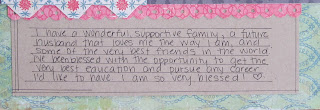 I have a wonderful, supportive family, a future
husband that loves me the way I am, and
some of the very best friends in the world.
I've been blessed with the opportunity to get the
very best education and pursue any career
I'd like to have. I am so very blessed! ♡